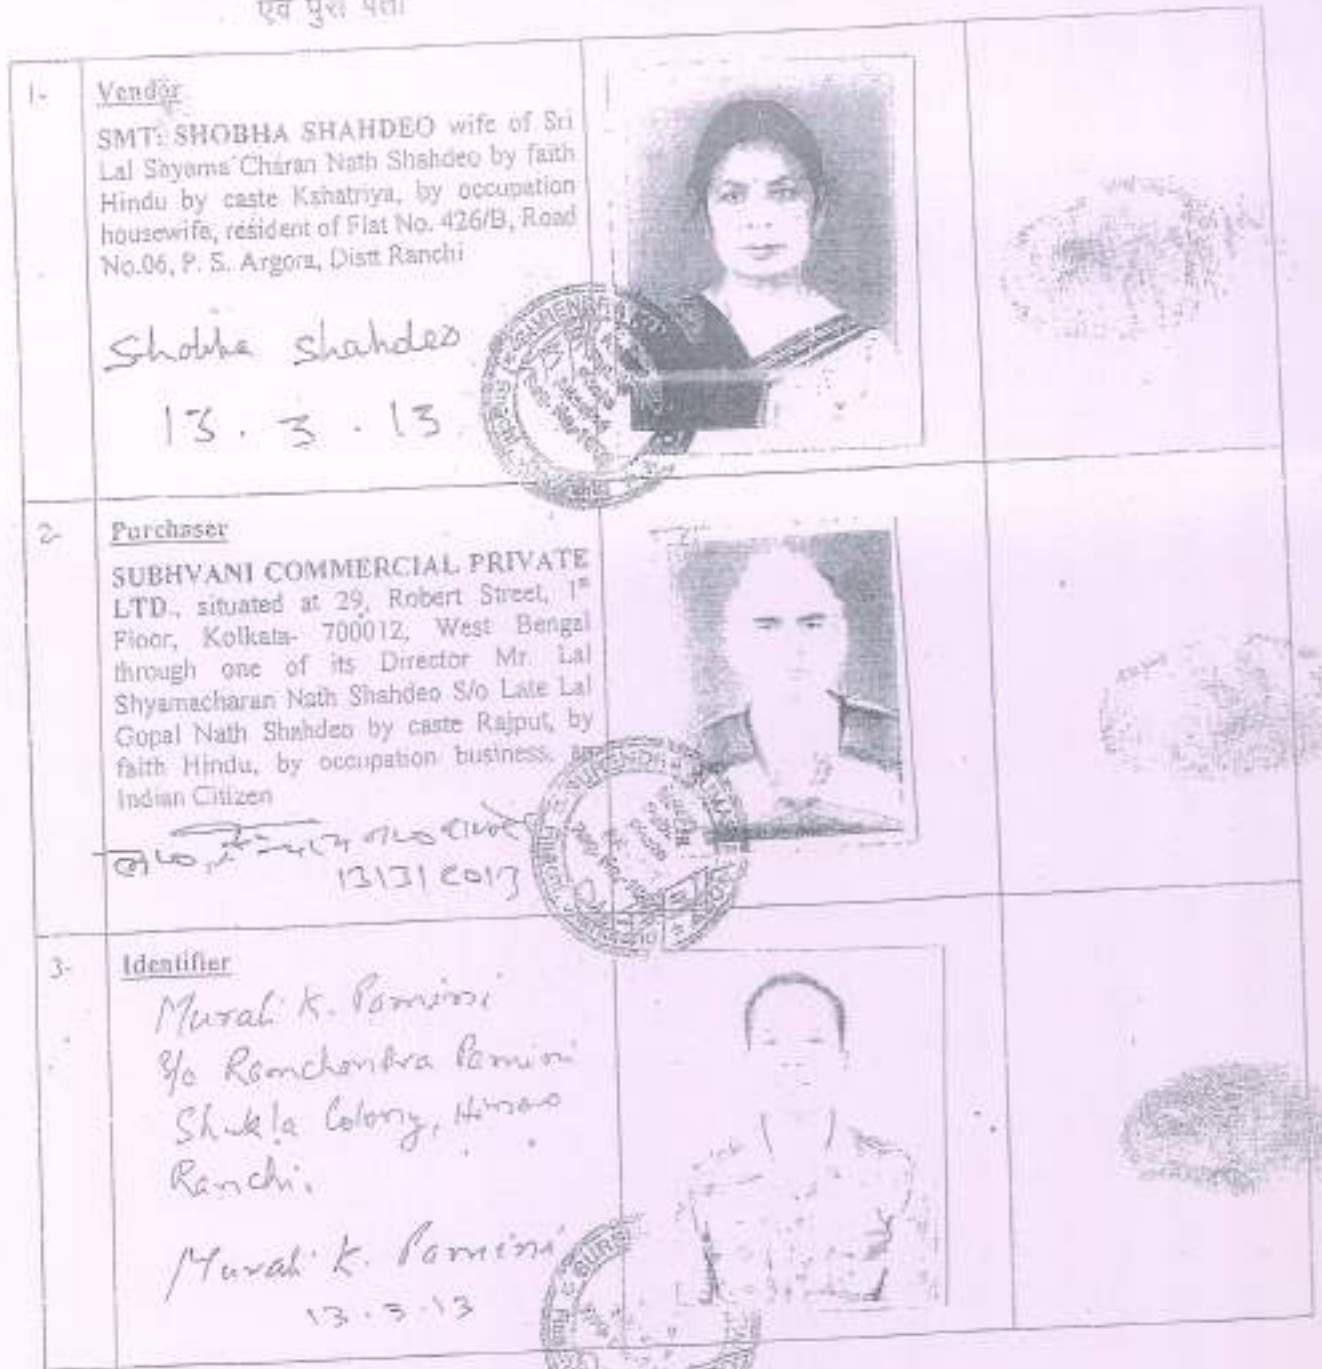 एवं पुरा पता
1-
Vendor
SMT: SHOBHA SHAHDEO wife of Sri
Lal Shyama Charan Nath Shahdeo by faith
Hindu by caste Kshatriya, by occupation
housewife, resident of Flat No. 426/B, Road
No.06, P. S. Argora, Distt Ranchi
Shobha Shahdeo
13.3.13
2-
Purchaser
SUBHVANI COMMERCIAL PRIVATE
LTD., situated at 29, Robert Street, 1st
Floor, Kolkata- 700012, West Bengal
through one of its Director Mr. Lal
Shyamacharan Nath Shahdeo S/o Late Lal
Gopal Nath Shahdeo by caste Rajput, by
faith Hindu, by occupation business, an
Indian Citizen
13/3/2013
3-
Identifier
Murali K.
S/o Ramchandra
Shukla Colony, Hinoo
Ranchi.
Murali K.
13.3.13